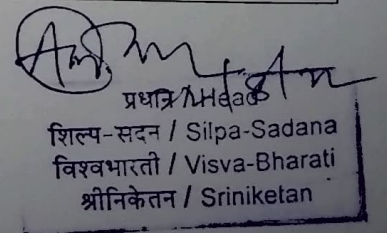 प्रधान / Head
शिल्प-सदन / Silpa-Sadana
विश्वभारती / Visva-Bharati
श्रीनिकेतन / Sriniketan